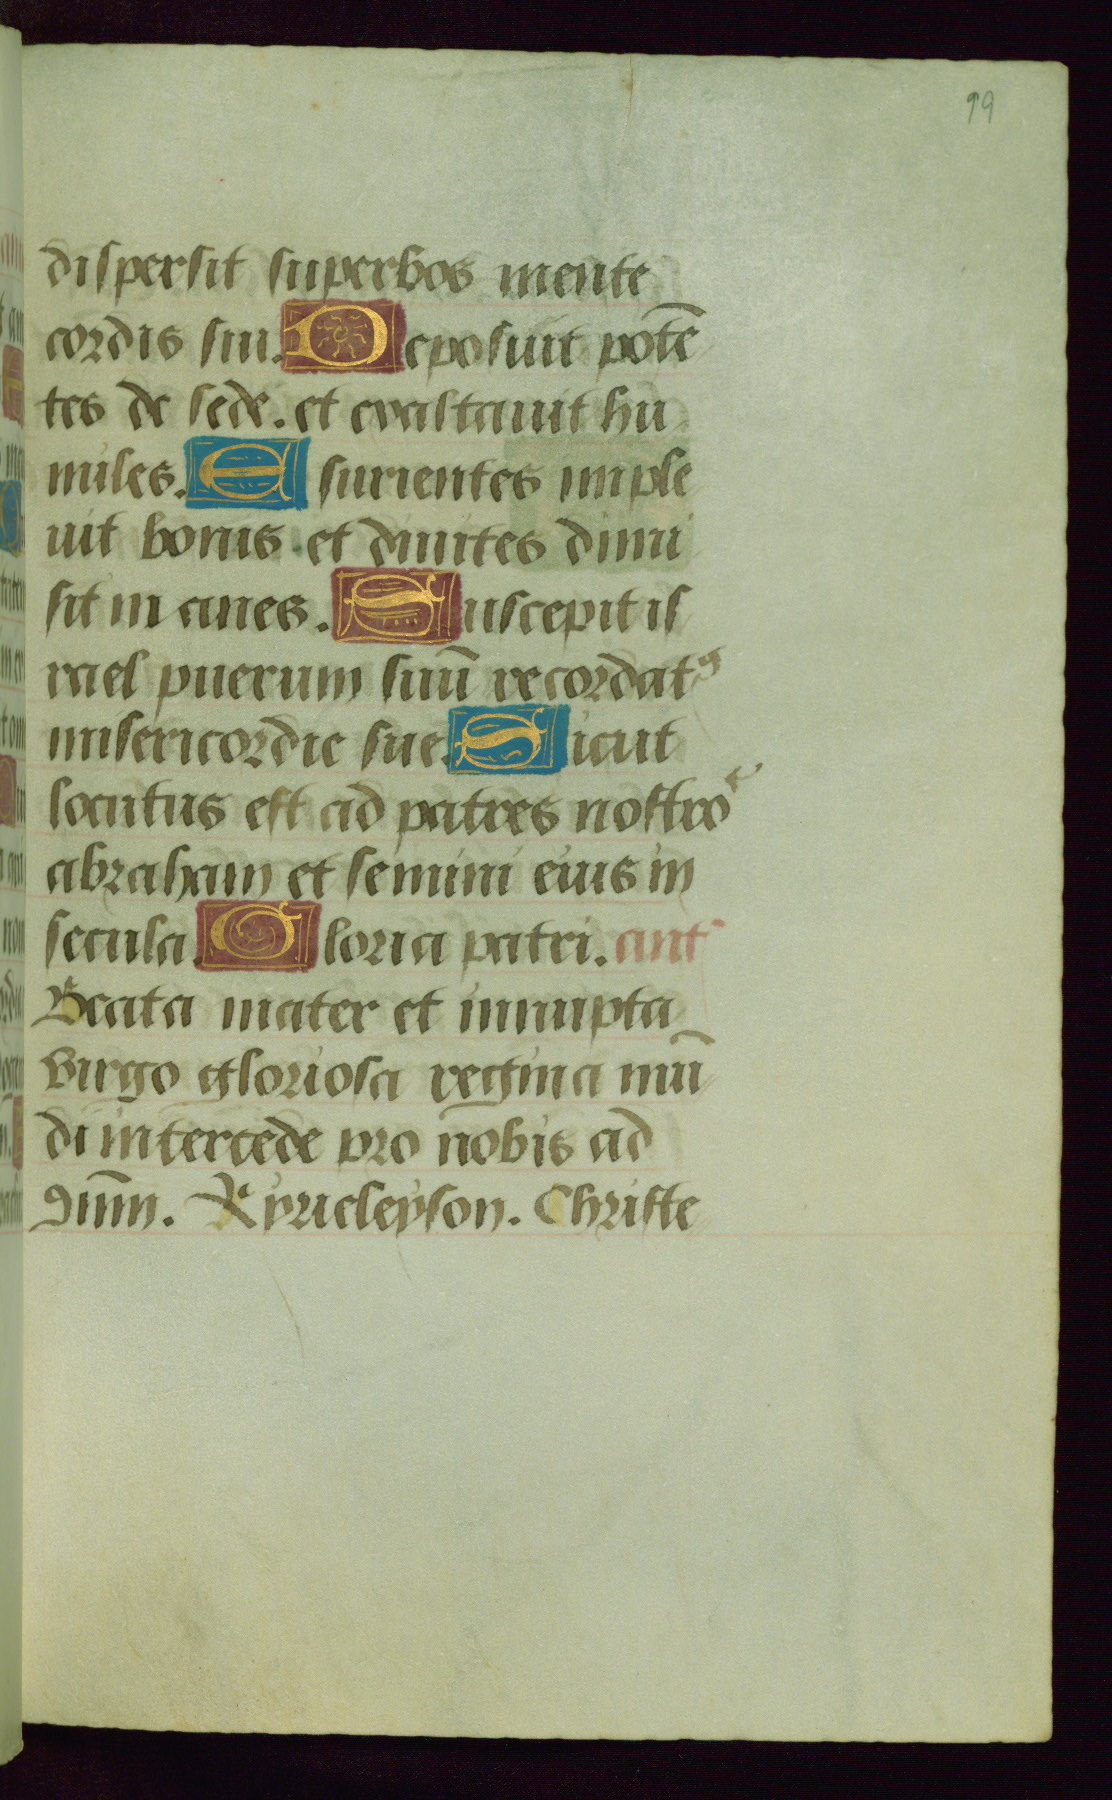 99
dispersit superbos mente
cordis sui. Deposuit potē
tes de sede. et exaltauit hu
miles. Esurientes imple
uit bonis et diuites dimi
sit in anes. Suscepit is
rael puerum suū recordatꝰ
misericordie sue. Sicut
locutus est ad patres nostros
abraham et semini eius in
secula. Gloria patri. ant
Beata mater et innupta
virgo gloriosa regina mū
di intercede pro nobis ad
dnm̄. Kyrieleyson. Christe